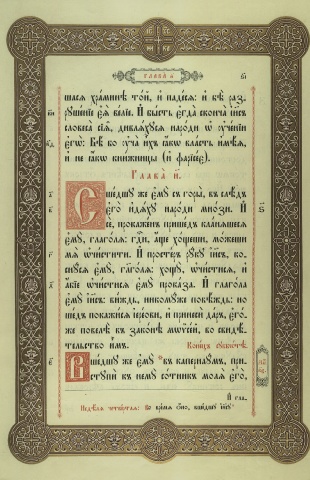 ГЛАВА и҃
шася хра́минѣ той, и҆ падѐся: и҆ бѣ̀ раз-
руше́нїе є҆ѧ̀ ве́лїе. И҆ бы́сть є҆гда̀ сконча̀ і҆и҃съ
словеса̀ сїѧ̑, дивлѧ́хꙋсѧ наро́ди ѡ҆ ᲂу҆че́нїи
є҆гѡ̀: Бѣ́ бо ᲂу҆чѧ̀ и҆̀хъ ꙗ҆́кѡ вла́сть и҆мѣ́ѧ,
и҆ не ꙗ҆́кѡ кни́жницы (и҆ фарїсе́є).
Глава̀ и҃.
Сше́дшꙋ же є҆мꙋ̀ съ горы̀, въ слѣ́дъ
є҆гѡ̀ и҆дѧ́хꙋ наро́ди мно́зи. И҆
сѐ, прокаже́нъ прише́дъ кла́нѧшесѧ
є҆мꙋ̀, глаго́лѧ: гдⷭ҇и, а҆́ще хо́щеши, мо́жеши
мѧ̀ ѡ҆чⷭ҇тити. И҆ просте́ръ рꙋ́кꙋ і҆и҃съ, ко-
снꙋ́сѧ є҆мꙋ̀, глаго́лѧ: хощꙋ̀, ѡ҆чи́стисѧ. и҆
а҆́бїе ѡ҆чи́стисѧ є҆мꙋ̀ прока́за. И҆ глаго́ла
є҆мꙋ̀ і҆и҃съ: ви́ждь, ни комꙋ́же повѣ́ждь: но
ше́дъ покажи́сѧ і҆ере́ови, и҆ принесѝ да́ръ, є҆го́-
же повелѣ̀ въ зако́нѣ мѡѷсе́й, во свидѣ́-
тельство и҆̀мъ.
Коне́цъ сꙋббѡ́тѣ.
Вше́дшꙋ же є҆мꙋ̀ въ капернаꙋ́мъ, при-
стꙋпѝ къ немꙋ̀ со́тникъ молѧ̀ є҆го̀,
И҆ гла-
Недѣ́лѧ четве́ртаѧ: Во вре́мѧ ѻ҆́но, вше́дшꙋ і҆и҃сꙋ